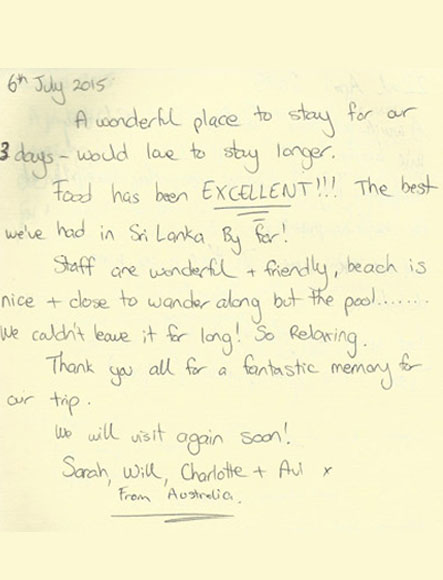 6th July 2015
A wonderful place to stay for our
3 days - would love to stay longer.
Food has been EXCELLENT!!! The best
we've had in Sri Lanka. By far!
Staff are wonderful + friendly, beach is
nice + close to wander along but the pool.......
We couldn't leave it for long! So Relaxing.
Thank you all for a fantastic memory for
our trip.
We will visit again soon!
Sarah, Will, Charlotte + Avi x
From Australia.